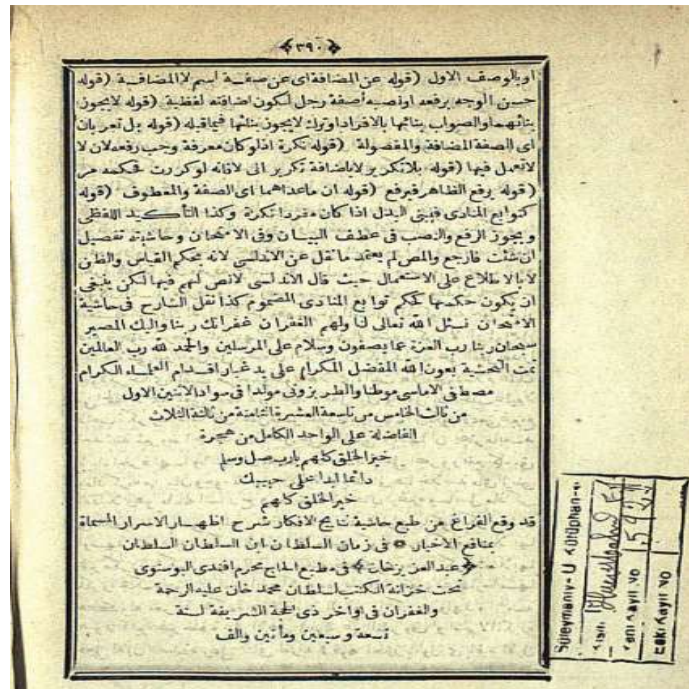 ٣٩٠
او بالوصف الاول (قوله عن المضافة اى عن صفة اسم لا المضافة (قوله
حسن الوجه برفعه او نصبه صفة رجل لكون اضافته لفظية (قوله لا يجوز
بنائهما والصواب بنائها بالافراد او ترك لا يجوز بنائها فيما قبله (قوله بل تعربان
اى الصفة المضافة والمفصولة (قوله نكرة اذ لو كان معرفة وجب رفعه لان لا
لا تعمل فيها (قوله بلا تكرير لا باضافة تكرير الى لا فانه لو كررت فحكمه مر
(قوله يرفع الظاهر فيرفع (قوله ان ما عداهما اى الصفة والمعطوف (قوله
كتوابع المنادى فيبنى البدل اذا كان مفردا نكرة وكذا التأكيد اللفظى
ويجوز الرفع والنصب فى عطف البيان وفى الامتحان وحاشيته تفصيل
ان شئت فارجع والمص لم يعتمد ما نقل عن الاندلسى لانه بحكم القياس والظن
لا بالاطلاع على الاستعمال حيث قال الاندلسى لا نص لهم فيها لكن ينبغى
ان يكون حكمها كحكم توابع المنادى المضموم كذا نقل الشارح فى حاشية
الامتحان نسئل الله تعالى لنا ولهم الغفران غفرانك ربنا واليك المصير
سبحان ربنا رب العزة عما يصفون وسلام على المرسلين والحمد لله رب العالمين
تمت التحشية بعون الله المفضل المكرام على يد غبار اقدام العلماء الكرام
مصطفى الاماسى موطنا والطربزونى مولدا فى سواد الاثنين الاول
من ثالث الخامس من تاسعة العشرة الثامنة من ثالثة الثلاث
الفاضلة على الواحد الكامل من هجرة
خير الخلق كلهم يا رب صل وسلم
دائما ابدا على حبيبك
خير الخلق كلهم
قد وقع الفراغ عن طبع حاشية نتايج الافكار شرح اظهار الاسرار المسماة
بمنافع الاخيار ٥ فى زمان السلطان ابن السلطان السلطان
عبد العزيز خان فى مطبع الحاج محرم افندى البوسنوى
تحت خزانة الكتب لسلطان محمد خان عليه الرحمة
والغفران فى اواخر ذى الحجة الشريفة لسنة
تسعة وسبعين ومأتين والف
Süleymaniye U Kütüphanesi
Kısmı
Yeni Kayıt No
Eski Kayıt No